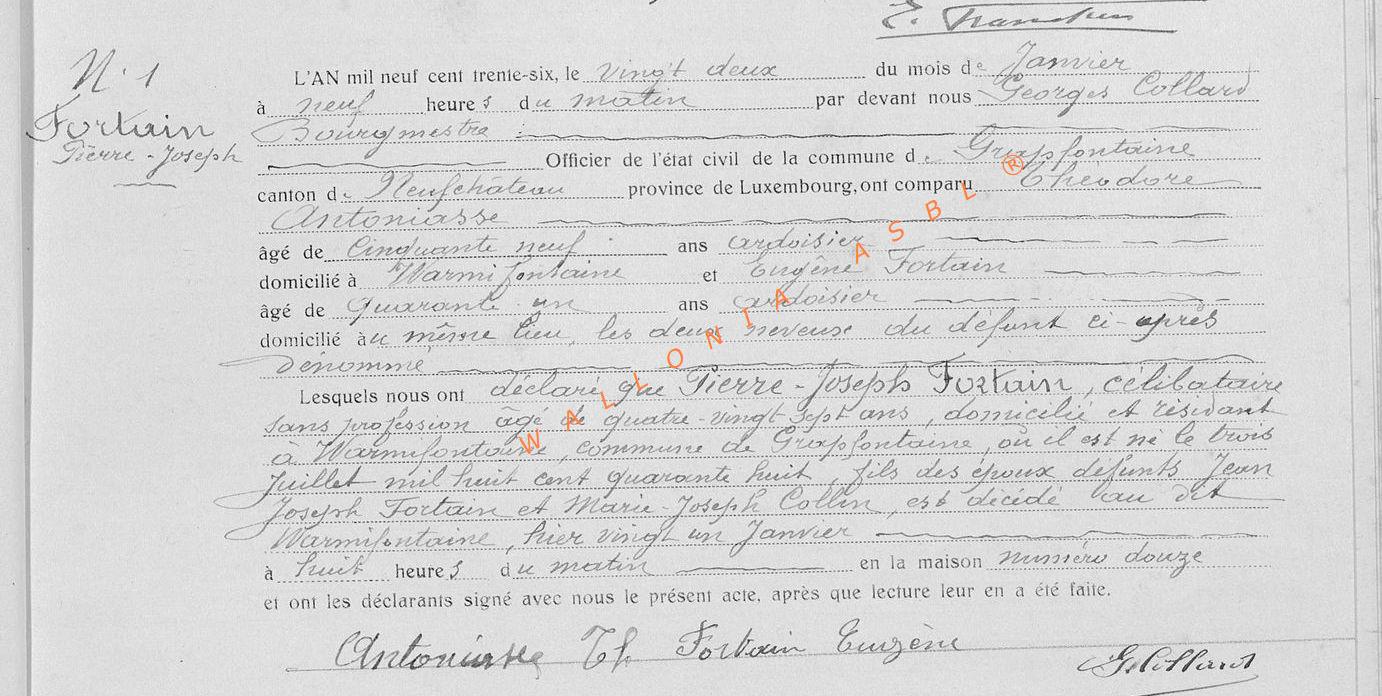 N. 1
Fortain
Pierre-Joseph
L'AN mil neuf cent trente-six, le vingt deux du mois de Janvier
à neuf heures du matin par devant nous Georges Collard
Bourgmestre
Officier de l'état civil de la commune de Grapfontaine
canton de Neufchâteau province de Luxembourg, ont comparu Théodore
Antoniasse
âgé de Cinquante neuf ans ardoisier
domicilié à Warmifontaine et Eugène Fortain
âgé de quarante un ans ardoisier
domicilié au même lieu, les deux neveux du défunt ci-après
dénommé
Lesquels nous ont déclaré que Pierre-Joseph Fortain, célibataire
sans profession âgé de quatre-vingt sept ans, domicilié et résidant
à Warmifontaine, commune de Grapfontaine, où il est né le trois
Juillet mil huit cent quarante huit, fils des époux défunts Jean
Joseph Fortain et Marie-Joseph Collin, est décédé au dit
Warmifontaine, hier vingt un Janvier
à huit heures du matin en la maison numéro douze
et ont les déclarants signé avec nous le présent acte, après que lecture leur en a été faite.
Antoniasse Th Fortain Eugène
G. Collard
WALLONIA ASBL ®